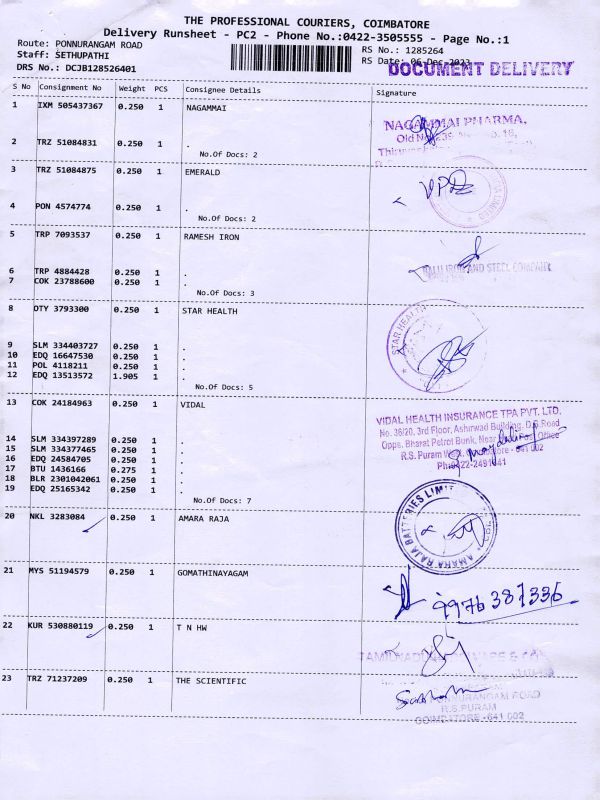 THE PROFESSIONAL COURIERS, COIMBATORE
Delivery Runsheet - PC2 - Phone No.:0422-3505555 - Page No.:1
Route: PONNURANGAM ROAD
Staff: SETHUPATHI
DRS No.: DCJB128526401
RS No.: 1285264
RS Date: 06-Dec-2023
DOCUMENT DELIVERY
S No Consignment No Weight PCS Consignee Details Signature
1 IXM 505437367 0.250 1 NAGAMMAI
NAGAMMAI PHARMA,
2 TRZ 51084831 0.250 1 .
No.Of Docs: 2
3 TRZ 51084875 0.250 1 EMERALD
4 PON 4574774 0.250 1 .
No.Of Docs: 2
5 TRP 7093537 0.250 1 RAMESH IRON
6 TRP 4884428 0.250 1 .
IRON AND STEEL COMPANY
7 COK 23788600 0.250 1 .
No.Of Docs: 3
8 DTY 3793300 0.250 1 STAR HEALTH
STAR HEALTH
9 SLM 334403727 0.250 1 .
10 EDQ 16647530 0.250 1 .
11 POL 4118211 0.250 1 .
12 EDQ 13513572 1.905 1 .
No.Of Docs: 5
13 COK 24184963 0.250 1 VIDAL
VIDAL HEALTH INSURANCE TPA PVT. LTD.
No. 36/20, 3rd Floor, Ashirwad Building, D.B.Road
Opps. Bharat Petrol Bunk, Near Office
R.S. Puram - 641 002
14 SLM 334397289 0.250 1 .
15 SLM 334377465 0.250 1 .
16 EDQ 24584705 0.250 1 .
17 BTU 1436166 0.275 1 .
18 BLR 2301042061 0.250 1 .
19 EDQ 25165342 0.250 1 .
No.Of Docs: 7
20 NKL 3283084 0.250 1 AMARA RAJA
AMARA RAJA BATTERIES LIMITED
21 MYS 51194579 0.250 1 GOMATHINAYAGAM
9976387336
22 KUR 530880119 0.250 1 T N HW
23 TRZ 71237209 0.250 1 THE SCIENTIFIC
PONNURANGAM ROAD
R.S.PURAM
COIMBATORE-641 002